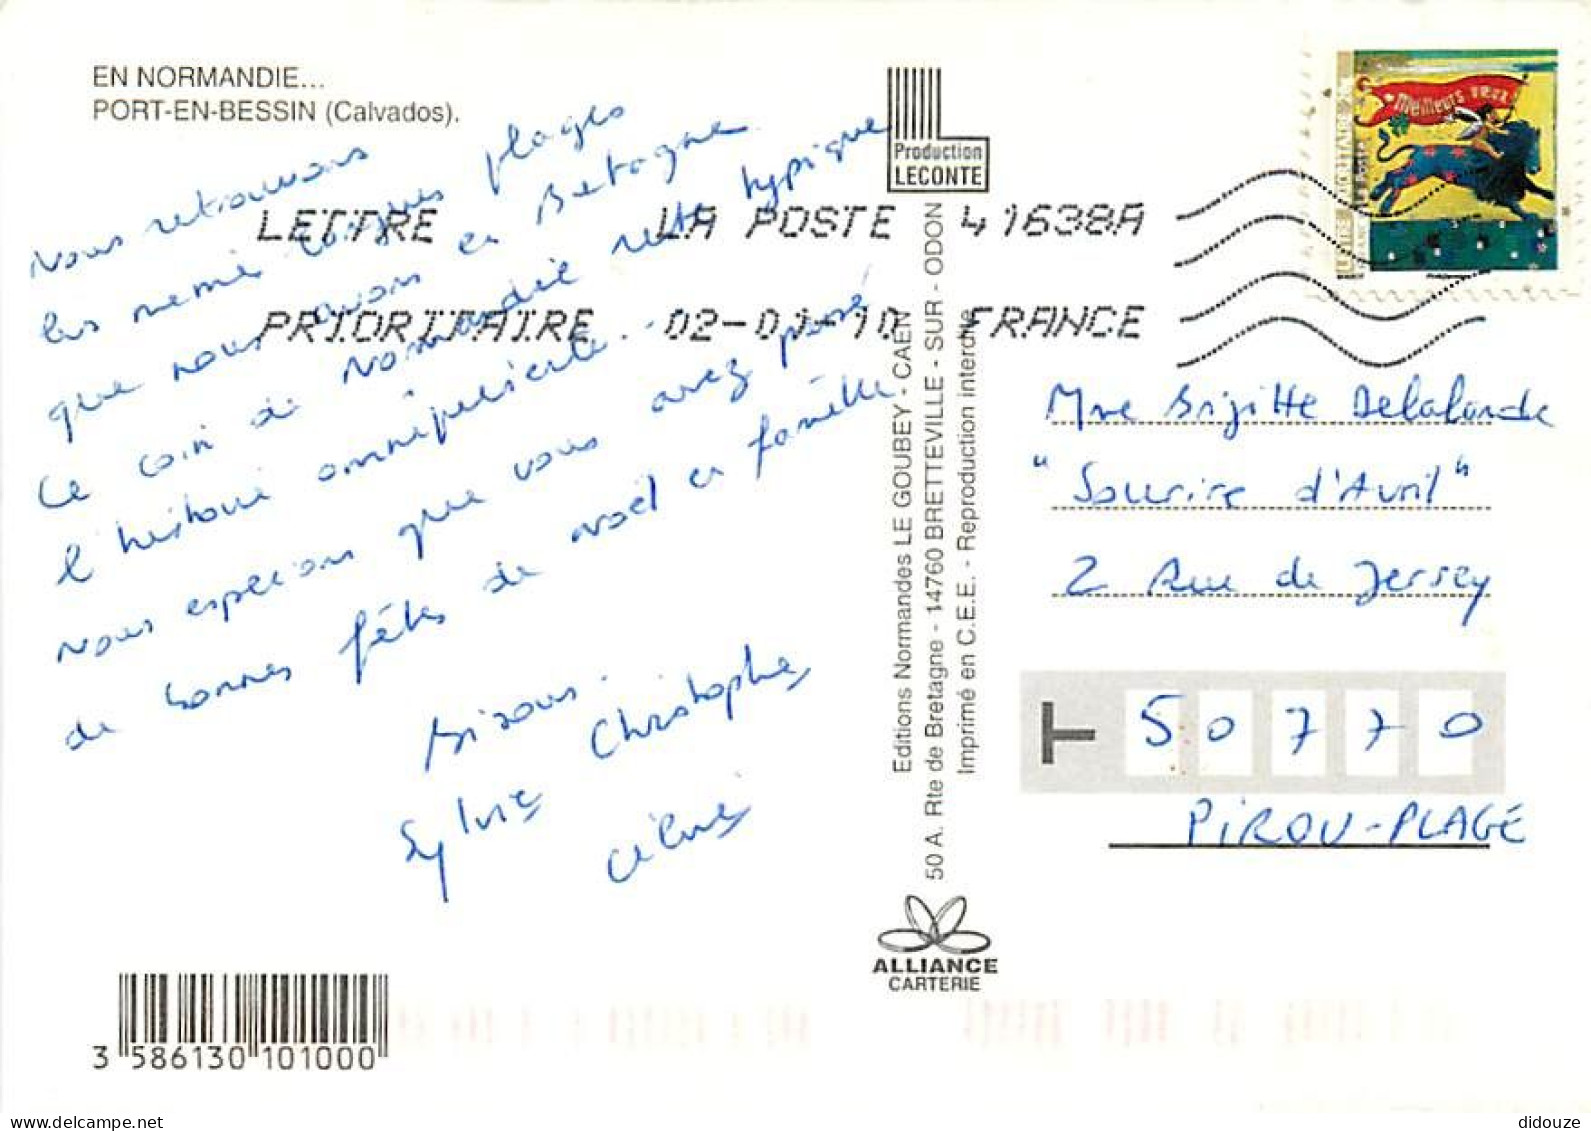 EN NORMANDIE...
PORT-EN-BESSIN (Calvados).
Nous retrouvons
les mêmes longues plages
que nous avons en Bretagne.
Ce coin de Normandie reste typique
l'histoire omniprésente.
Nous espérons que vous avez passé
de bonnes fêtes de Noël en famille
Bisous.
Sylvie Christophe
Production
LECONTE
LETTRE LA POSTE 41638A
PRIORITAIRE 02-01-10 FRANCE
Meilleurs vœux!
Editions Normandes LE GOUBEY - CAEN
50 A. Rte de Bretagne - 14760 BRETTEVILLE - SUR - ODON
Imprimé en C.E.E. - Reproduction interdite
Mme Brigitte Delalande
"Sourire d'Avril"
2 Rue de Jersey
50770
PIROU-PLAGE
ALLIANCE
CARTERIE
3 586130 101000
delcampe.net
didouze